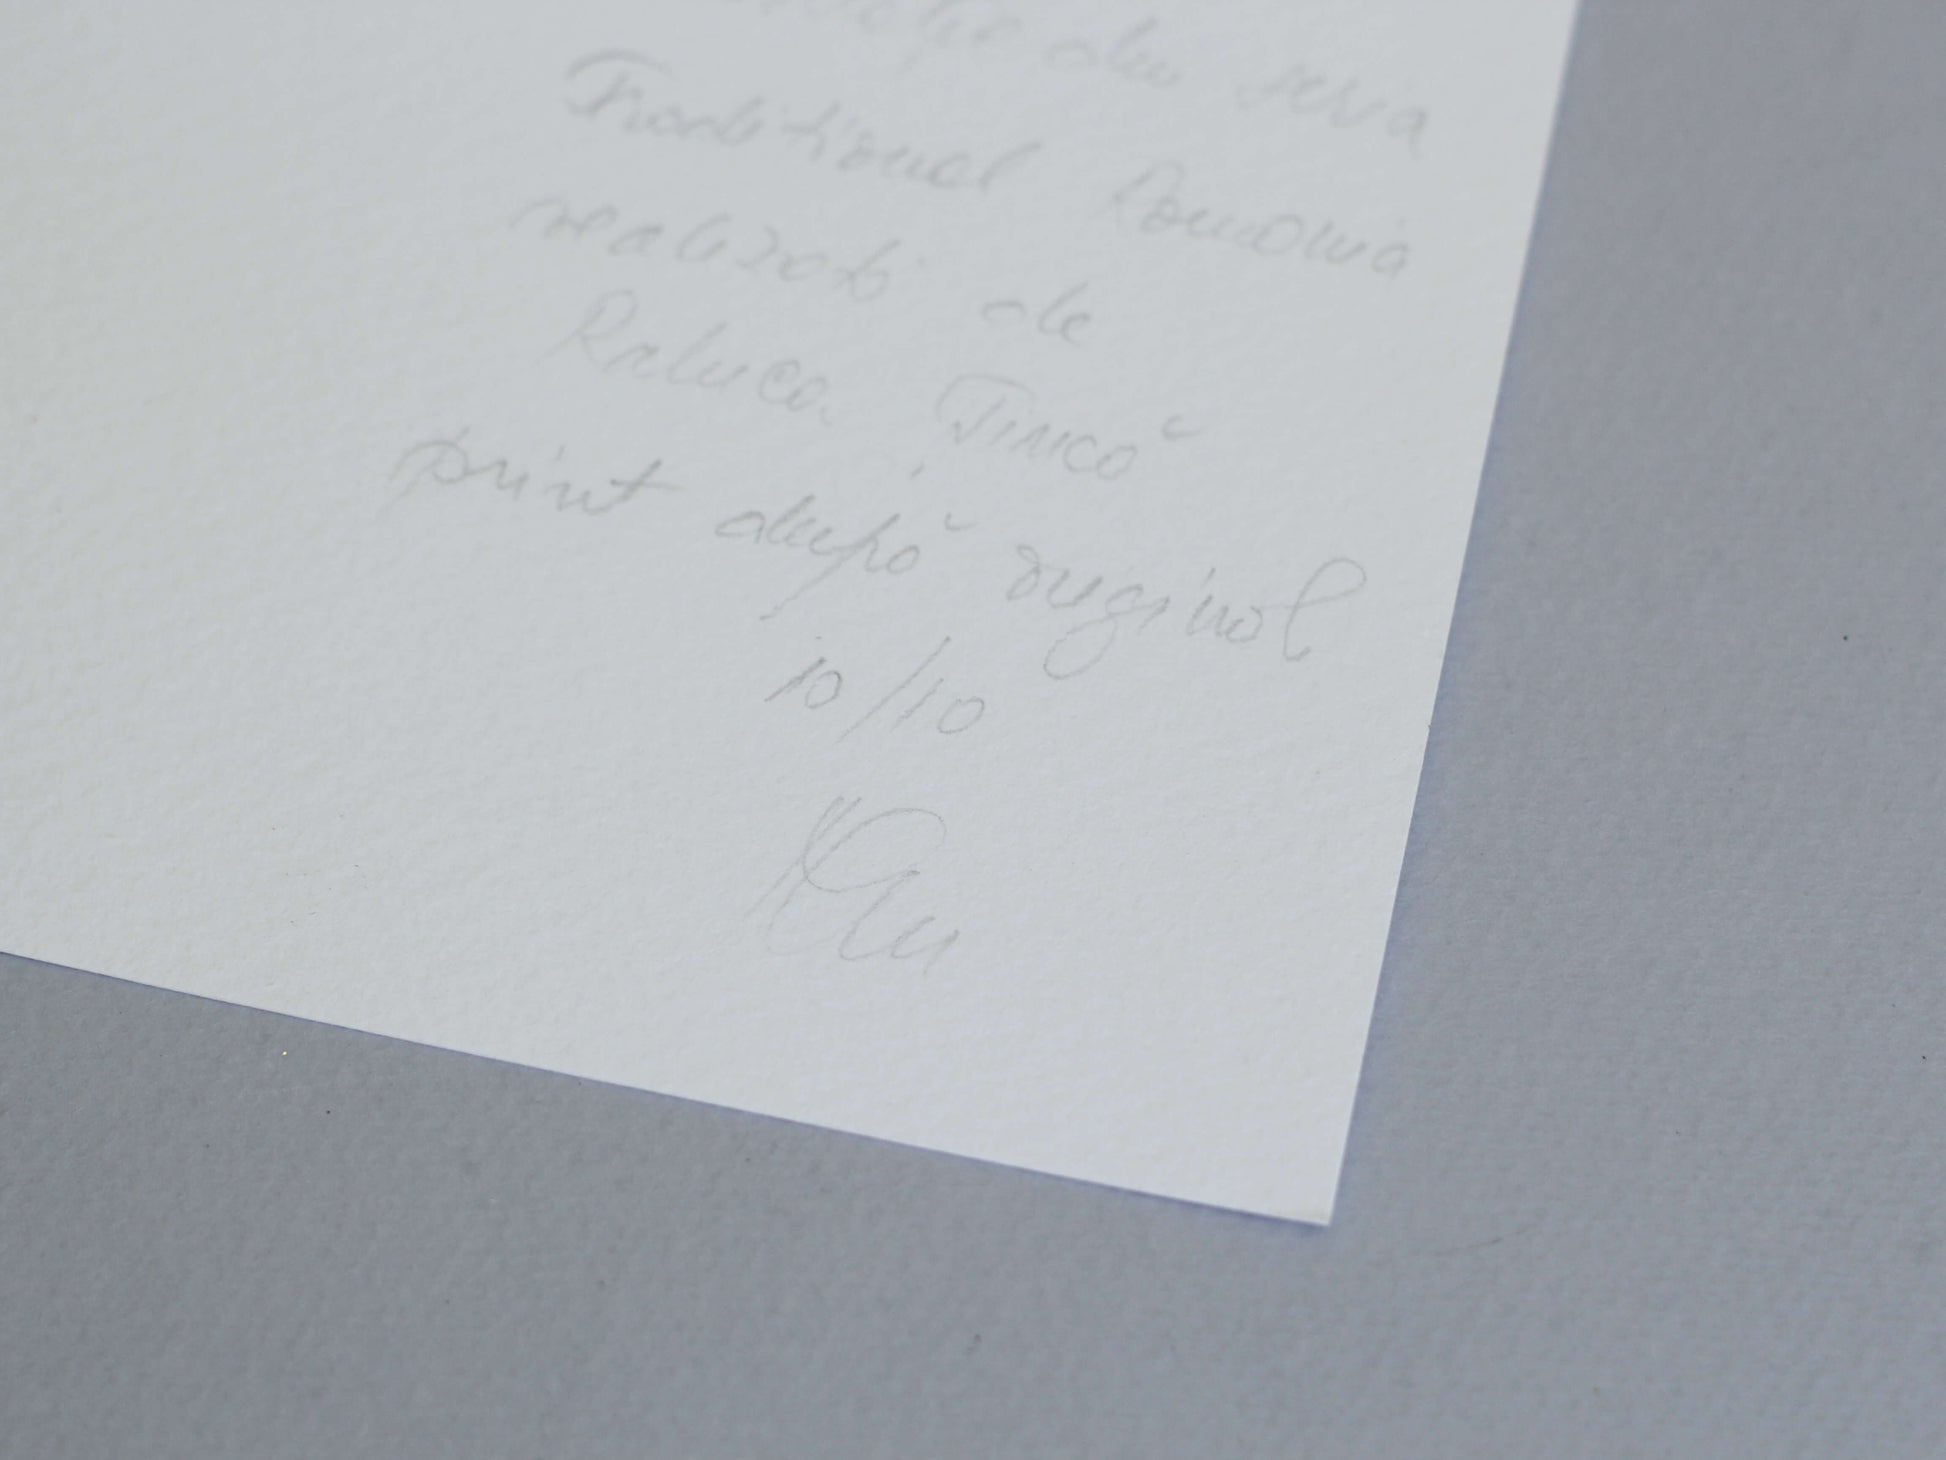 din seria
Traditional Romania
realizată de
Raluca Jincă
print după original
10/10